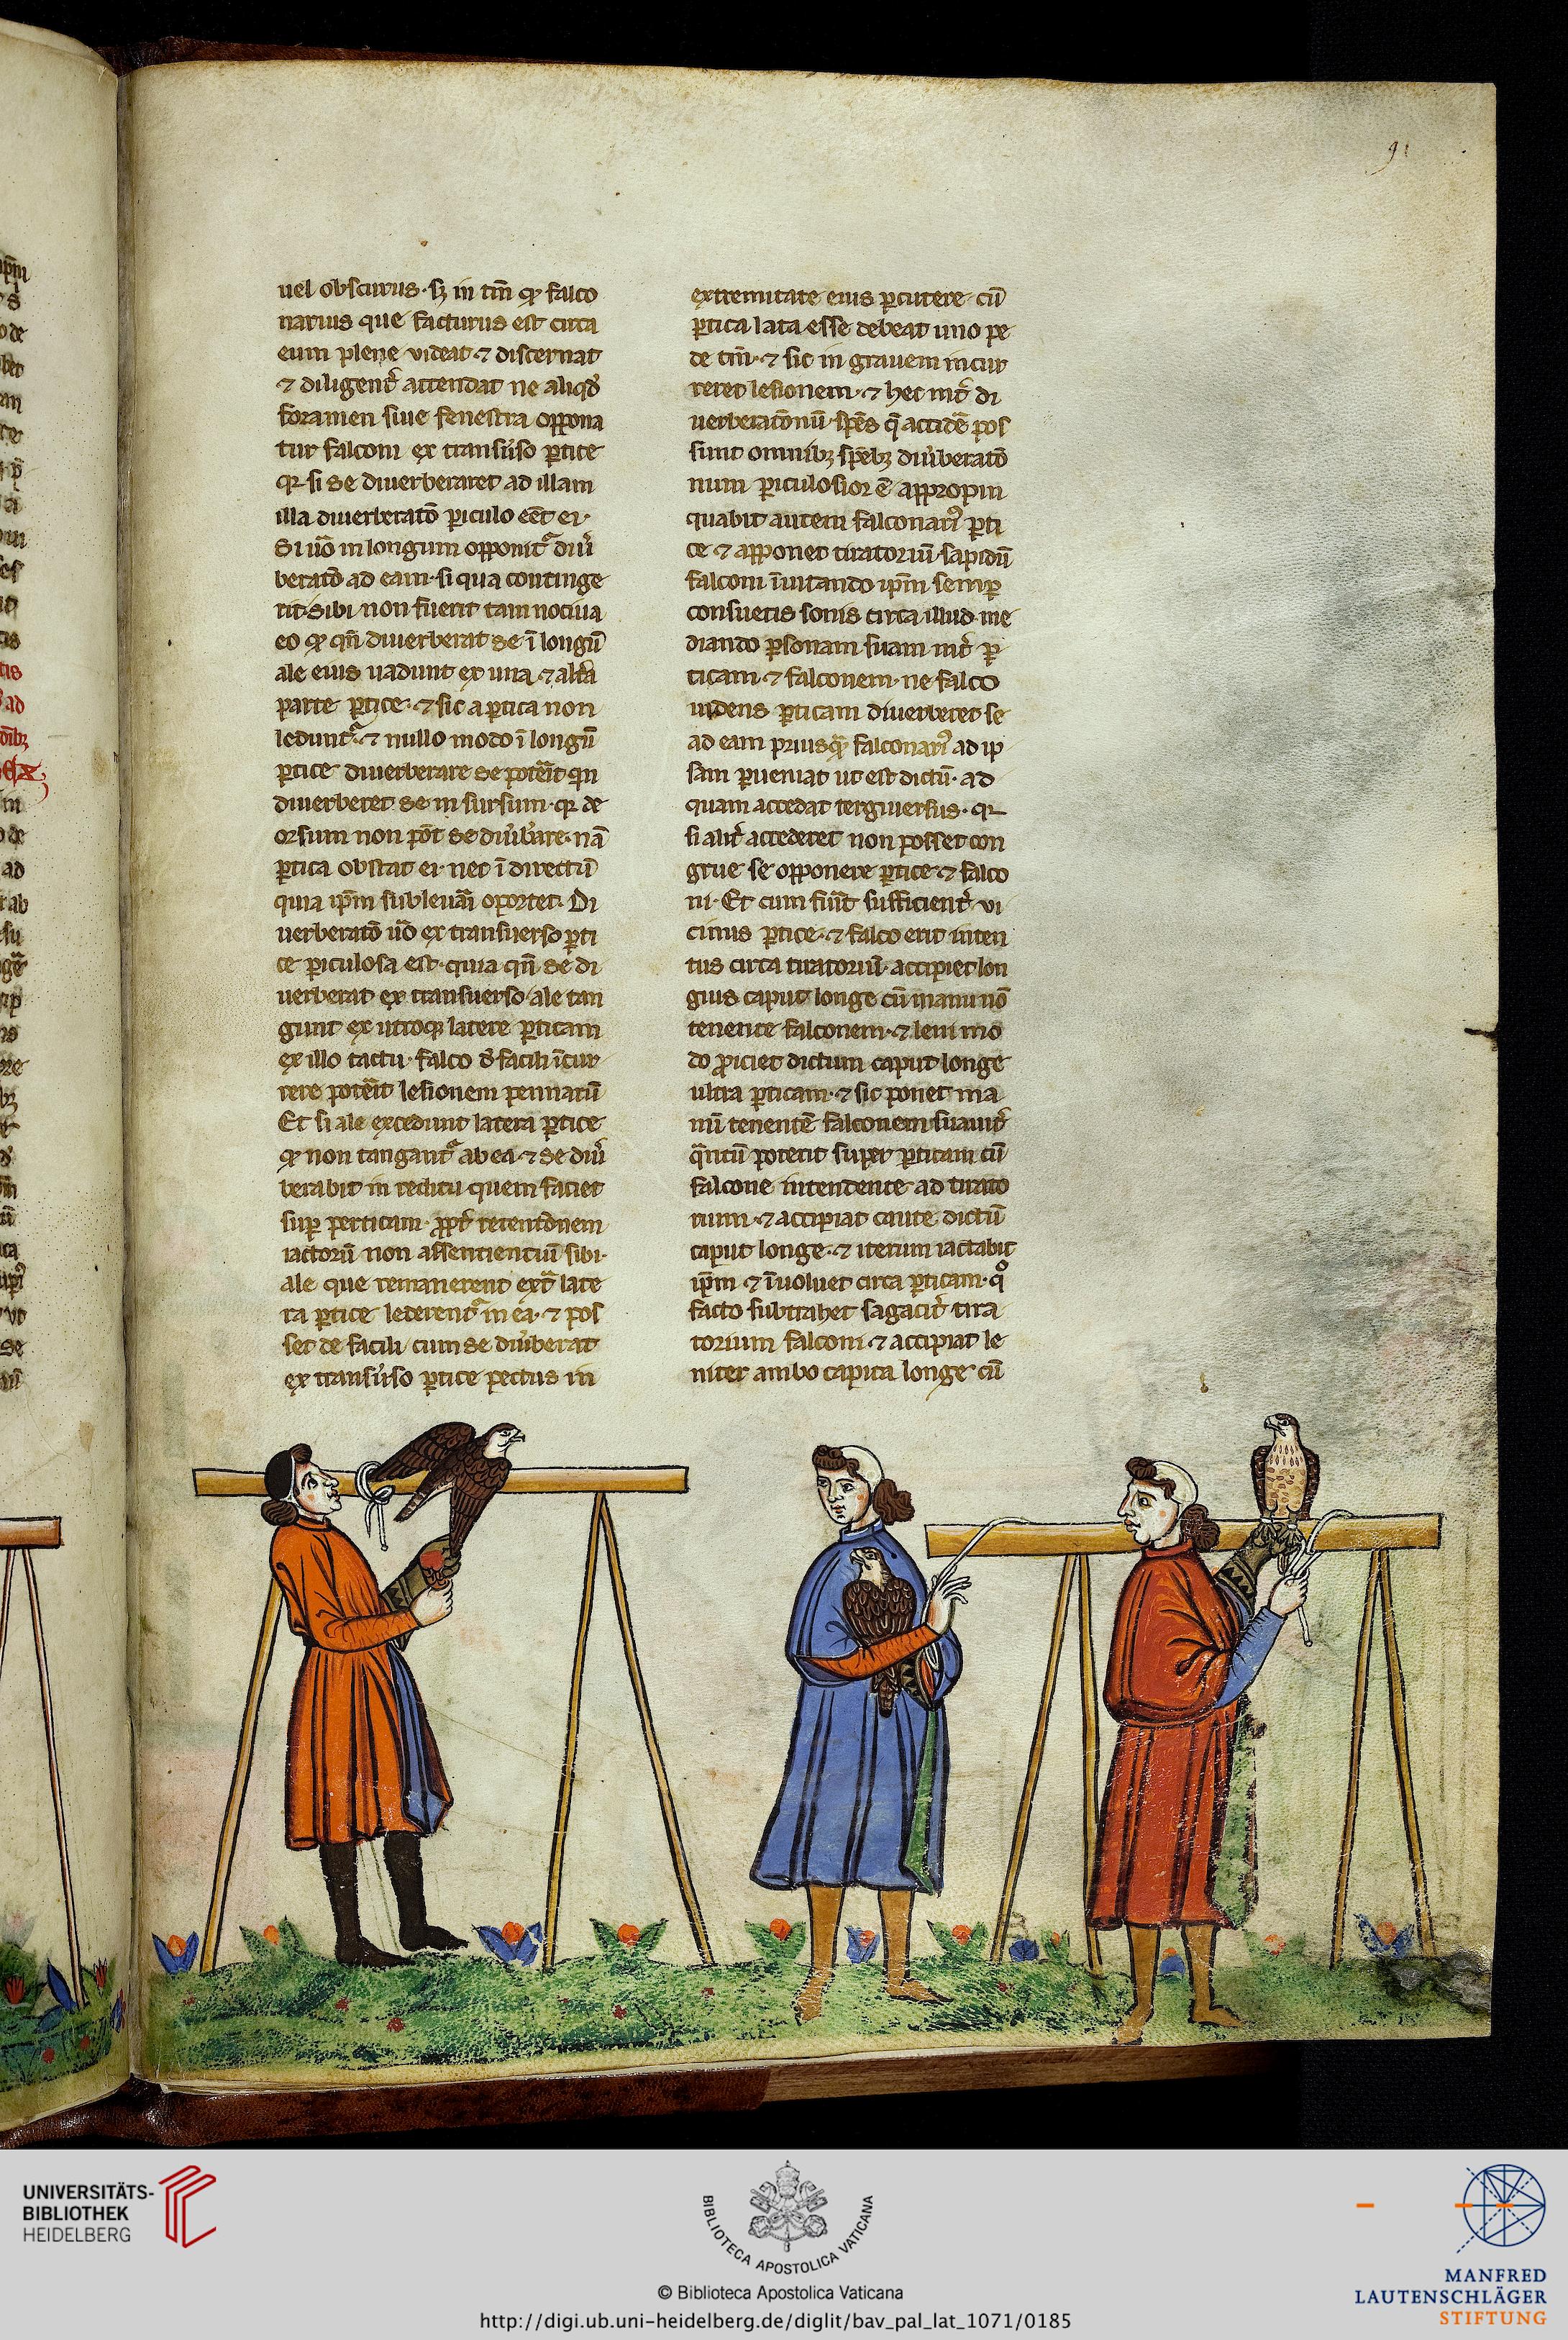 91
uel obscurus· sꝫ in tm̄ ꝙ falco
narius que facturus est circa
eum plene videat ⁊ discernat
⁊ diligent᷑ attendat ne aliqd᷑
foramen siue fenestra oppona
tur falconi ex transu᷑so ꝑtice
qꝛ si se diuerberaret ad illam
illa diuerberatō ꝑiculo eēt ei·
Si uō in longum opponit᷑ diu᷑
beratō ad eam· si qua continge
rit· sibi non fuerit tam nociua
eo ꝙ qn̄ diuerberat se ī longū
ale eius uadunt ex una ⁊ alt᷑a
parte ꝑtice· ⁊ sic a ꝑtica non
ledunt᷑· ⁊ nullo modo ī longū
ꝑtice diuerberare se potēit qn
diuerberet se in sursum· qꝛ de
orsum non pōt se diu᷑b᷑are· nā
ꝑtica obstat ei· nec ī directū
quia ip̄m subleuāi oportet· Di
uerberatō uō ex transuerso ꝑti
ce ꝑiculosa est· quia qn̄ se di
uerberat ex transuerso ale tan
gunt ex utroqꝫ latere ꝑticam
ex illo tactu· falco d᷑ facili īcur
rere potēit lesionem pennarū
Et si ale excedunt latera ꝑtice
ꝙ non tangant᷑ ab ea· ⁊ se diu᷑
berabit in reditu quem faciet
suꝑ perticam· ꝓpt᷑ retentōnem
iactorū non assentientiū sibi·
ale que remanerent ext᷑ late
ra ꝑtice lederent᷑ in ea· ⁊ pos
set de facili cum se diu᷑berat
ex transu᷑so ꝑtice pectus in
extremitate eius ꝑcutere· cū
ꝑtica lata esse debeat uno pe
de tm̄· ⁊ sic in grauem incur
reret lesionem· ⁊ hec int᷑ di
uerberatōnū sp̄es q̄ accidē pos
sunt omnibꝫ sp̄ebꝫ diu᷑beratō
num ꝑiculosior ē appropin
quabit autem falconari᷒ ꝑti
ce ⁊ apponet tiratoriū sapidū
falconi īuitando ip̄m semꝑ
consuetis sonis circa illud me
diando ꝑsonam suam int᷑ ꝑ
ticam ⁊ falconem· ne falco
uidens ꝑticam diuerberet se
ad eam priusqꝫ falconari᷒ ad ip
sam ꝑueniat ut est dictū· ad
quam accedat tergiuersus· qꝛ
si alit᷑ accederet non posset con
grue se opponere ꝑtice ⁊ falco
ni· Et cum fiūt sufficient᷑ vi
cinus ꝑtice· ⁊ falco erit inten
tus circa tiratoriū· accipiet lon
gius caput longe cū manu nō
tenente falconem· ⁊ leni mo
do ꝓiciet dictum caput longe
ultra ꝑticam· ⁊ sic ponet ma
nū tenentē falconem suauit᷑
q̄ntū poterit super ꝑticam cū
falcone intendente ad tirato
rium· ⁊ accipiat caute dictū
caput longe· ⁊ iterum iactabit
ip̄m ⁊ īuoluet circa ꝑticam· qͦ
facto subtrahet sagacit᷑ tira
torium falconi ⁊ accipiat le
niter ambo capita longe cū
UNIVERSITÄTS-
BIBLIOTHEK
HEIDELBERG
BIBLIOTECA APOSTOLICA VATICANA
© Biblioteca Apostolica Vaticana
http://digi.ub.uni-heidelberg.de/diglit/bav_pal_lat_1071/0185
MANFRED
LAUTENSCHLÄGER
STIFTUNG